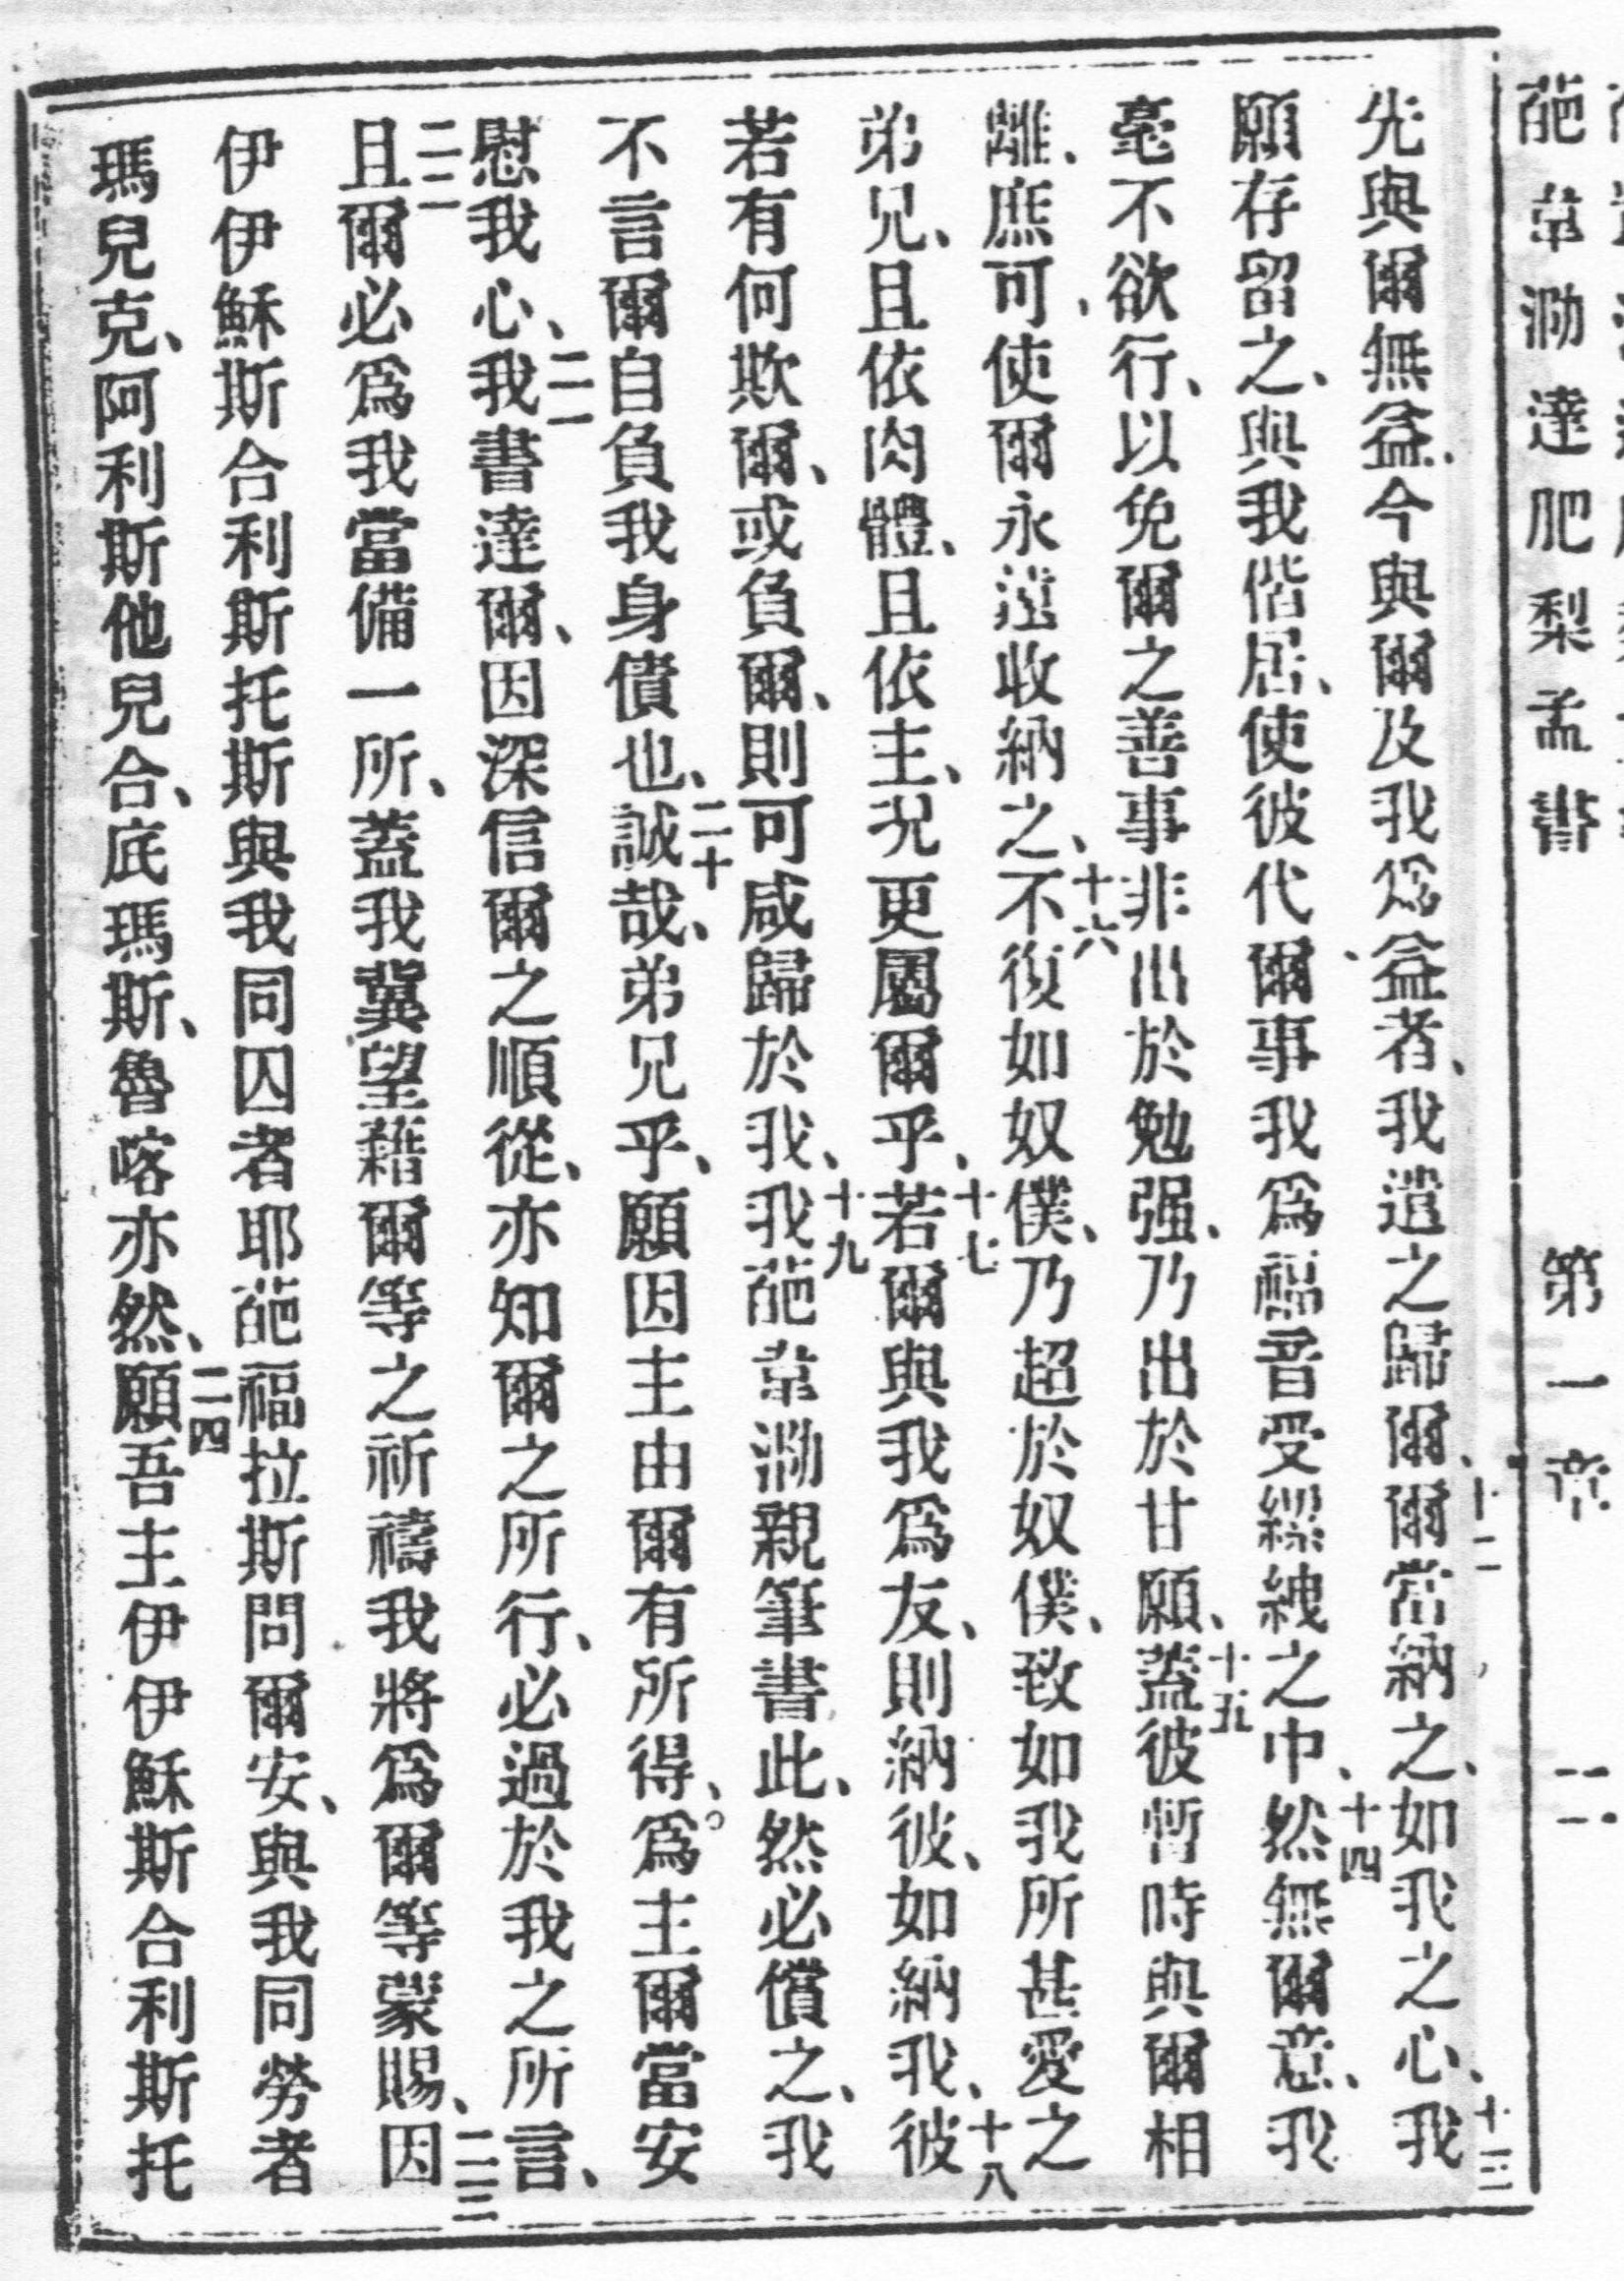 葩韋泐達肥梨孟書 第一章 二
先與爾無益、今與爾及我爲益者、我遣之歸爾、十二爾當納之、如我之心、十三我
願存留之、與我偕居、使彼代爾事我爲福音受縲絏之中、十四然無爾意、我
毫不欲行、以免爾之善事非出於勉强、乃出於甘願、十五蓋彼暫時與爾相
離、庶可使爾永遠收納之、十六不復如奴僕、乃超於奴僕、致如我所甚愛之
弟兄、且依肉體、且依主、况更屬爾乎、十七若爾與我爲友、則納彼、如納我、十八彼
若有何欺爾、或負爾、則可咸歸於我、十九我葩韋泐親筆書此、然必償之、我
不言爾自負我身債也、二十誠哉、弟兄乎、願因主由爾有所得、爲主爾當安
慰我心、二一我書達爾、因深信爾之順從、亦知爾之所行、必過於我之所言、
二二且爾必爲我當備一所、蓋我冀望藉爾等之祈禱我將爲爾等蒙賜、二三因
伊伊穌斯合利斯托斯與我同囚者耶葩福拉斯問爾安、與我同勞者
瑪兒克、阿利斯他兒合、底瑪斯、魯喀亦然、二四願吾主伊伊穌斯合利斯托